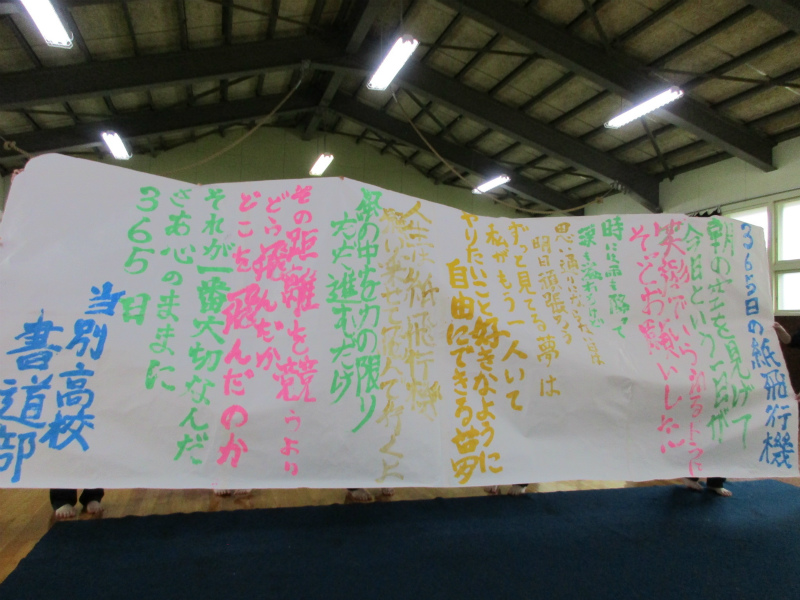 365日の紙飛行機
朝の空を見上げて
今日という一日が
笑顔でいられるように
そっとお願いした
時には雨も降って
涙も溢れるけど
思い通りにならない日は
明日頑張ろう
ずっと見てる夢は
私がもう一人いて
やりたいこと好きなように
自由にできる夢
人生は紙飛行機
願い乗せて飛んで行くよ
風の中を力の限り
ただ進むだけ
その距離を競うより
どう飛んだか
どこを飛んだのか
それが一番大切なんだ
さあ心のままに
365日
当別高校
書道部